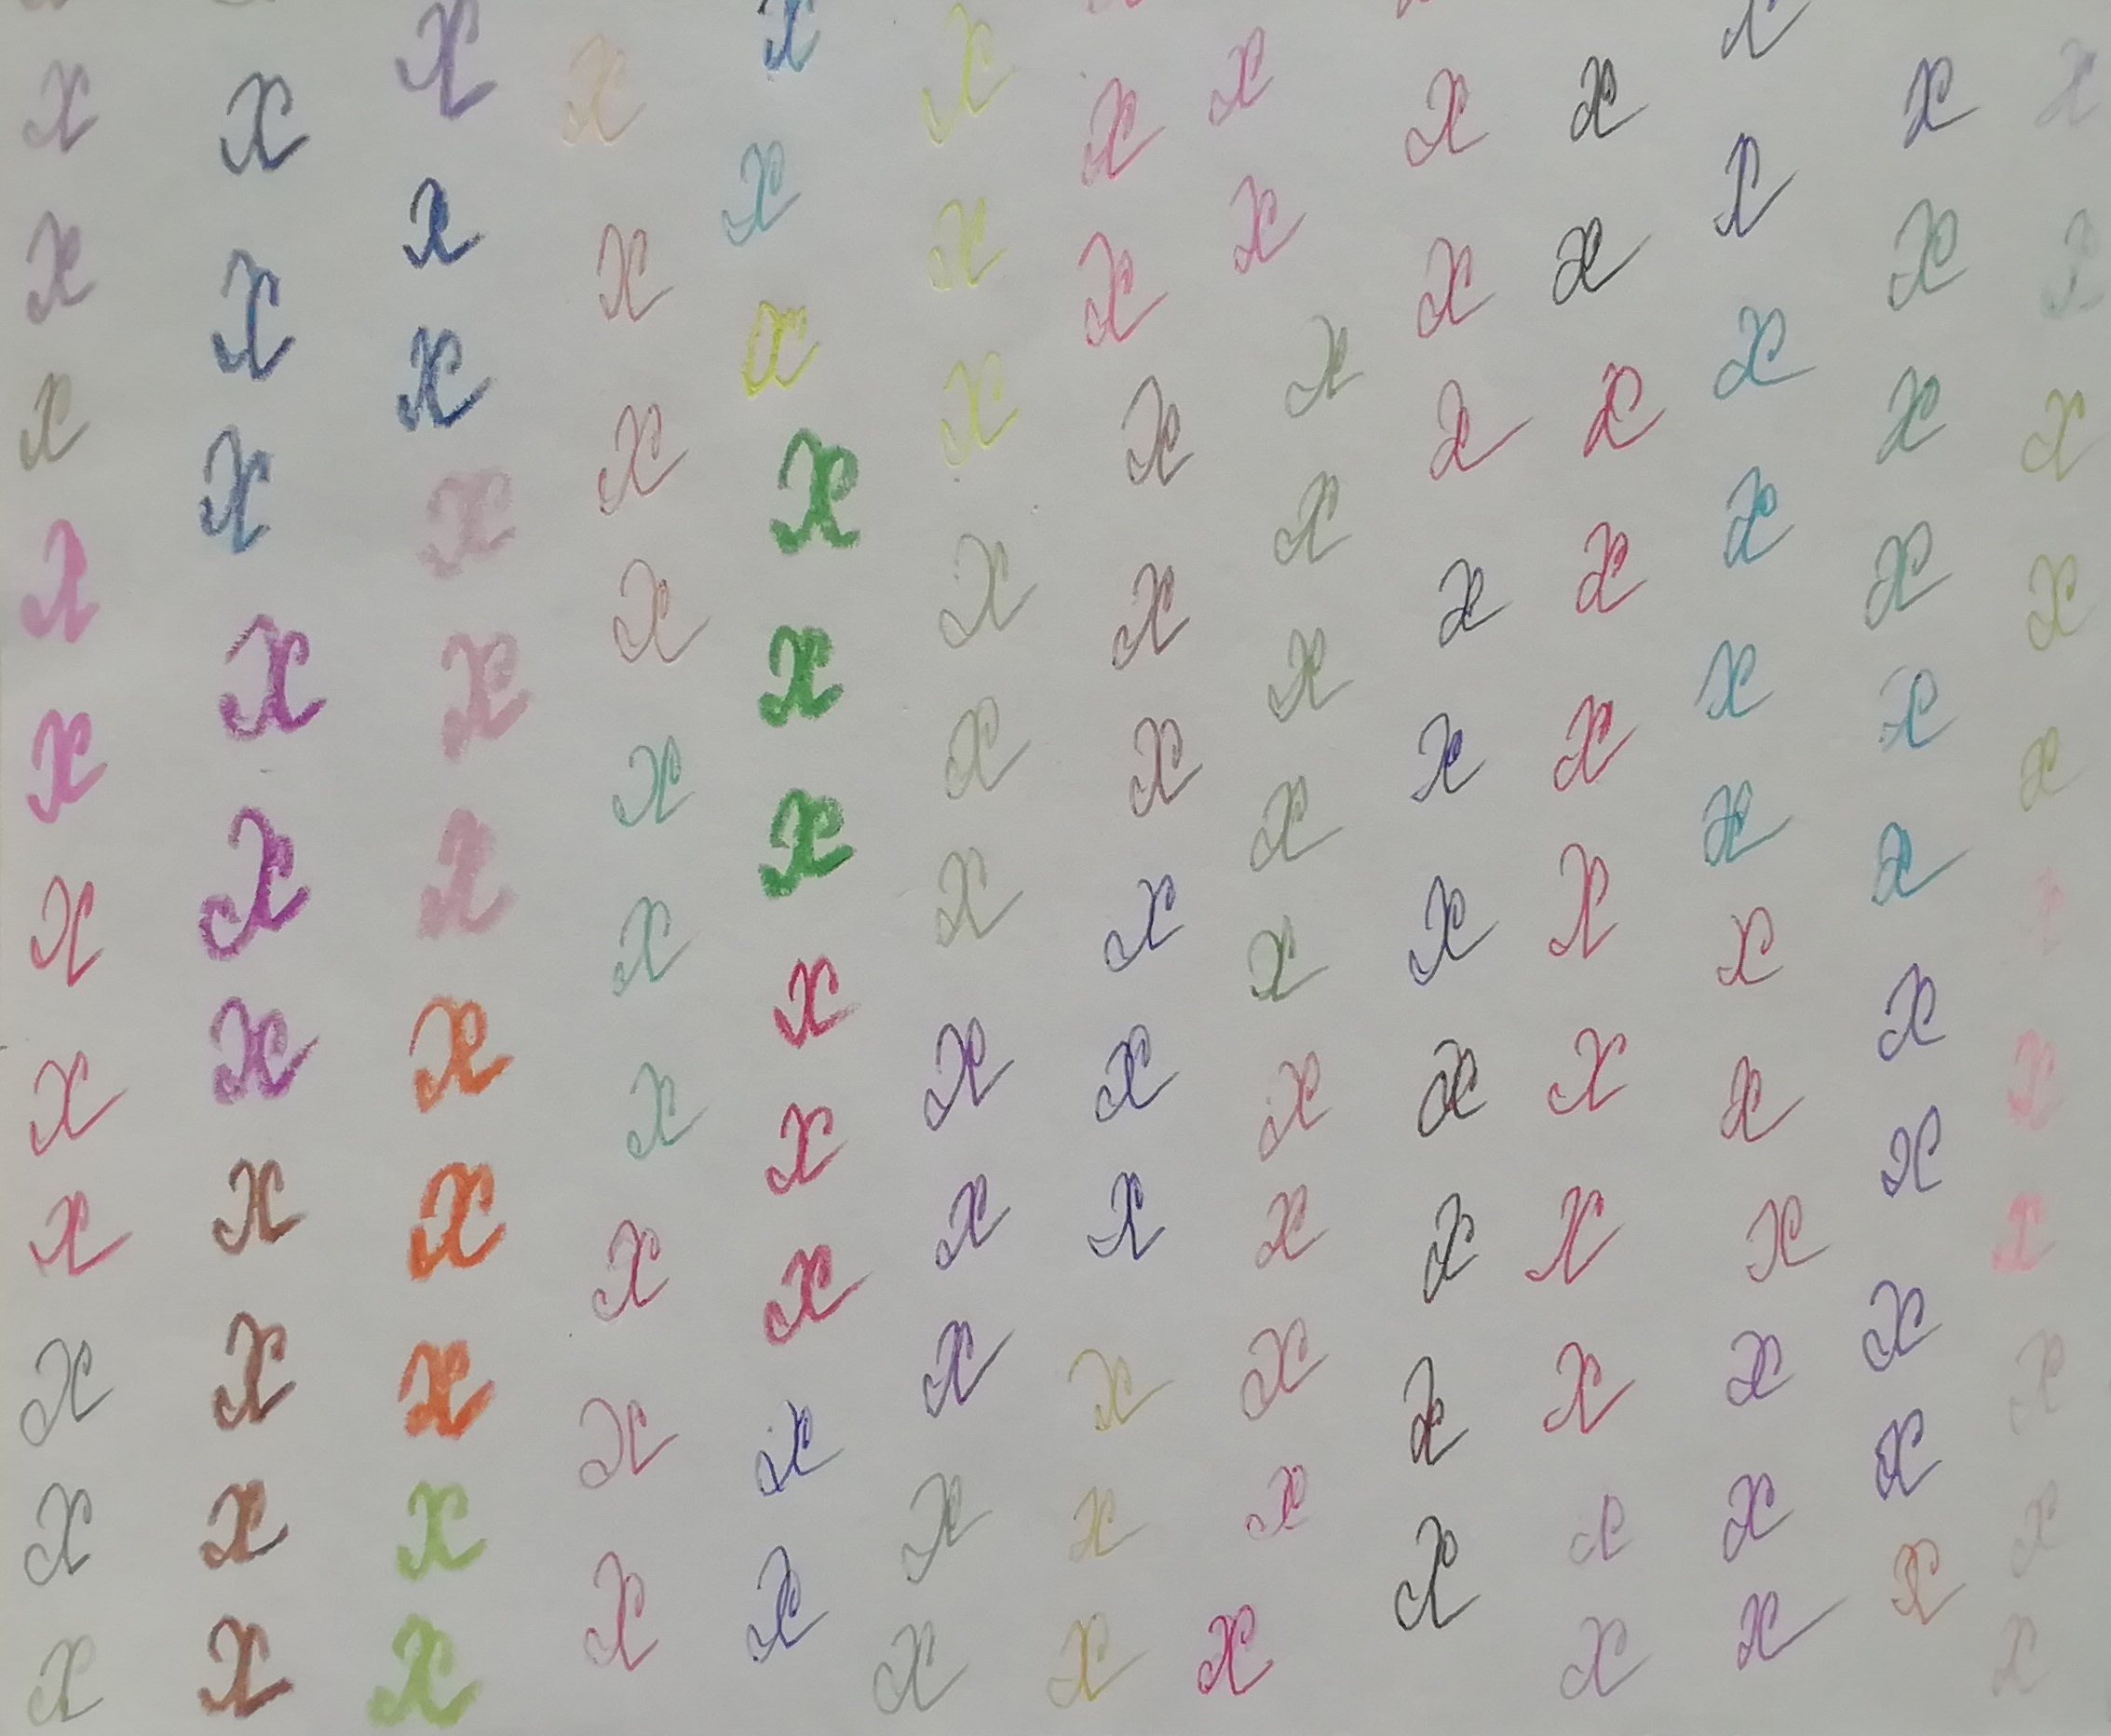 x x x x x x x x x x x x x
x x x x x x x x x x x x x
x x x x x x x x x x x x x
x x x x x x x x x x x x x
x x x x x x x x x x x x x
x x x x x x x x x x x x x
x x x x x x x x x x x x x
x x x x x x x x x x x x x
x x x x x x x x x x x x x
x x x x x x x x x x x x x
x x x x x x x x x x x x x